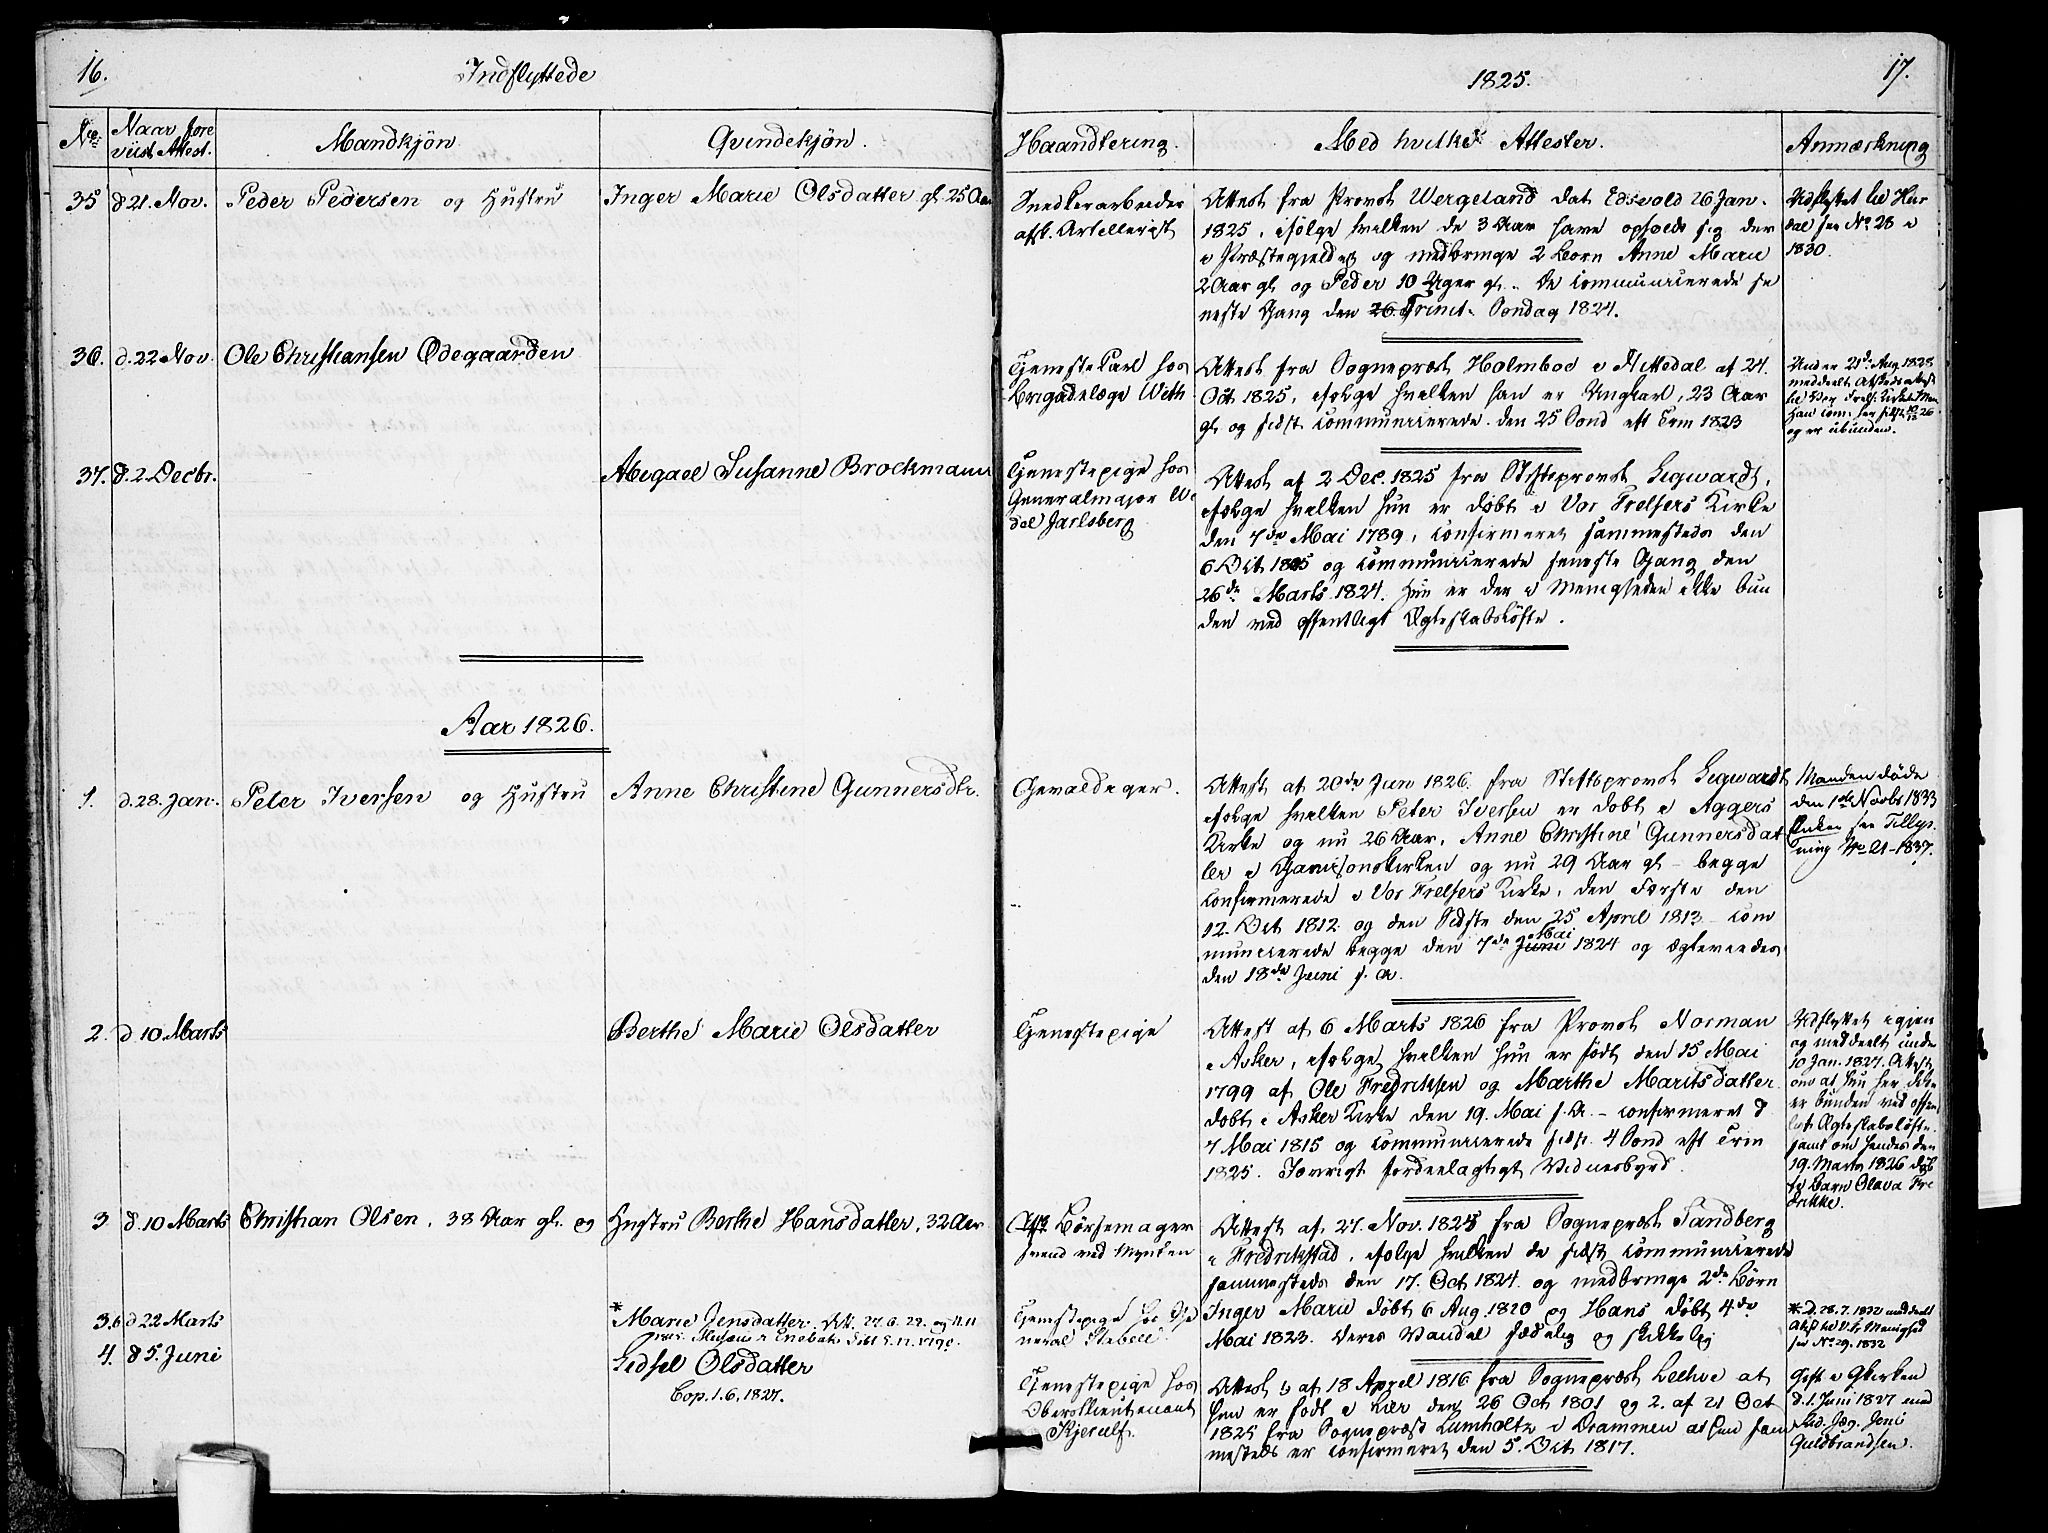 16.
Indflyttede
1825.
17.
No.
Naar fore
viist Attest.
Mandkjön
Qvindekjön.
Haandtering.
Med hvilke Attester.
Anmærkning
35
d 21. Nov.
Peder Pedersen og Hustru
Inger Marie Olsdatter gl. 25 Aar
Snedkerarbeider
afsk. Artillerist
Attest fra Provst Wergeland dat Edsvold 26 Jan.
1825, ifölge hvilken de 3 Aar have opholdt sig der
i Præstegjeldet og medbringe 2 Börn Anne Marie
2 Aar gl. og Peder 10 Uger gl. De communicerede se
neste Gang den 26. Trinit. Söndag 1824.
Udflyttet til Hur
dal see No. 28 i
1830.
36.
d. 22 Nov.
Ole Christiansen Ödegaarden
Tjenestekarl hos
Brigadelæge With
Attest fra Sognepræst Holmboe i Nittedal af 24.
Oct 1825, ifolge hvilken han er Ungkarl, 23 Aar
gl. og sidst communicerede den 25 Sönd eft Trin 1823
Under 21de Aug. 1828
meddeelt Attest
og er ubunden.
37.
d. 2. Decbr.
Abigael Susanne Brockmann
Tjenestepige hos
Generalmajor We
del Jarlsberg
Attest af 2 Dec. 1825 fra Stiftsprovst Sigwardt,
ifolge hvilken hun er döbt i Vor Frelsers Kirke
den 7de Mai 1789, confirmeret sammesteds den
6 Oct 1805 og communicerede seneste Gang den
26de Marts 1824. Hun er der i Menigheden ikke bun
den ved offentligt Ægteskabslöfte.
Aar 1826.
1.
d. 28. Jan.
Peter Iversen og Hustru
Anne Christine Gunnersdtr.
Gevaldiger.
Attest af 20de Jan 1826 fra Stiftsprovst Sigwardt
ifolge hvilken Peter Iversen er döbt i Aggers
Kirke og nu 26 Aar, Anne Christine Gunnersdat
ter i Garnisonskirken og nu 29 Aar gl. – begge
confirmerede i Vor Frelsers Kirke, den Förste den
12. Oct 1812 og den Sidste den 25 April 1813 – com
municerede begge den 7de Juni Mai 1824 og ægteviedes
den 18de Juni s. A.
Manden döde
den 1de Novbr 1833
Enken see Tillys
ning No 21–1837.
2.
d 10 Marts
Berthe Marie Olsdatter
Tjenestepige
Attest af 6 Marts 1826 fra Provst Norman
i Asker, ifolge hvilken hun er födt den 15 Mai
1799 af Ole Fredriksen og Marthe Maritsdatter
döbt i Asker Kirke den 19. Mai s. A. – confirmeret d
7 Mai 1815 og communicerede sidst 4 Sönd eft Trin
1825. Iövrigt fordeelagtigt Vidnesbyrd.
Udflyttet igjen
og meddeelt under
10 Jan. 1827. Attest
om at hun her ikke
er bunden ved offent
ligt Ægteskabslöfte
samt om hendes den
19. Marts 1826 döb
te Barn Olava Fre
drikke.
3
d. 10 Marts
Christian Olsen, 38 Aar gl. og
Hustru Berthe Hansdatter, 32 Aar
Afsk Börsemager
svend ved Mynten
Attest af 27. Nov. 1825 fra Sognepræst Sandberg
i Fredrikstad, ifolge hvilken de sidst communicerede
sammesteds den 17. Oct 1824 og medbringe 2de Börn
Inger Marie döbt 6 Aug. 1820 og Hans döbt 4de
Mai 1823. Deres Vandel sædelig og skikkelig
3.b
d 22 Marts
* Marie Jensdatter
Tjenestepige hos Ge
neral Stabell.
* d. 28. 7. 1832 meddeelt
Attest til V. Fr. Menighed
see No. 29. 1832
4.
d 5. Juni
Sidsel Olsdatter
Cop. 1. 6. 1827.
Tjenestepige hos
Oberstlieutenant
Kjerulf.
Attest 1, af 18 April 1816 fra Sognepræst at
hun er födt i Lier den 26 Oct 1801 og 2. af 21 Oct
1825 fra Sognepræst Lumholtz i Drammen at hun sam
mesteds er confirmeret den 5. Oct 1817.
Gift i Gkirken
d. 1. Juni 1827 med
Jens
Guldbrandsen.